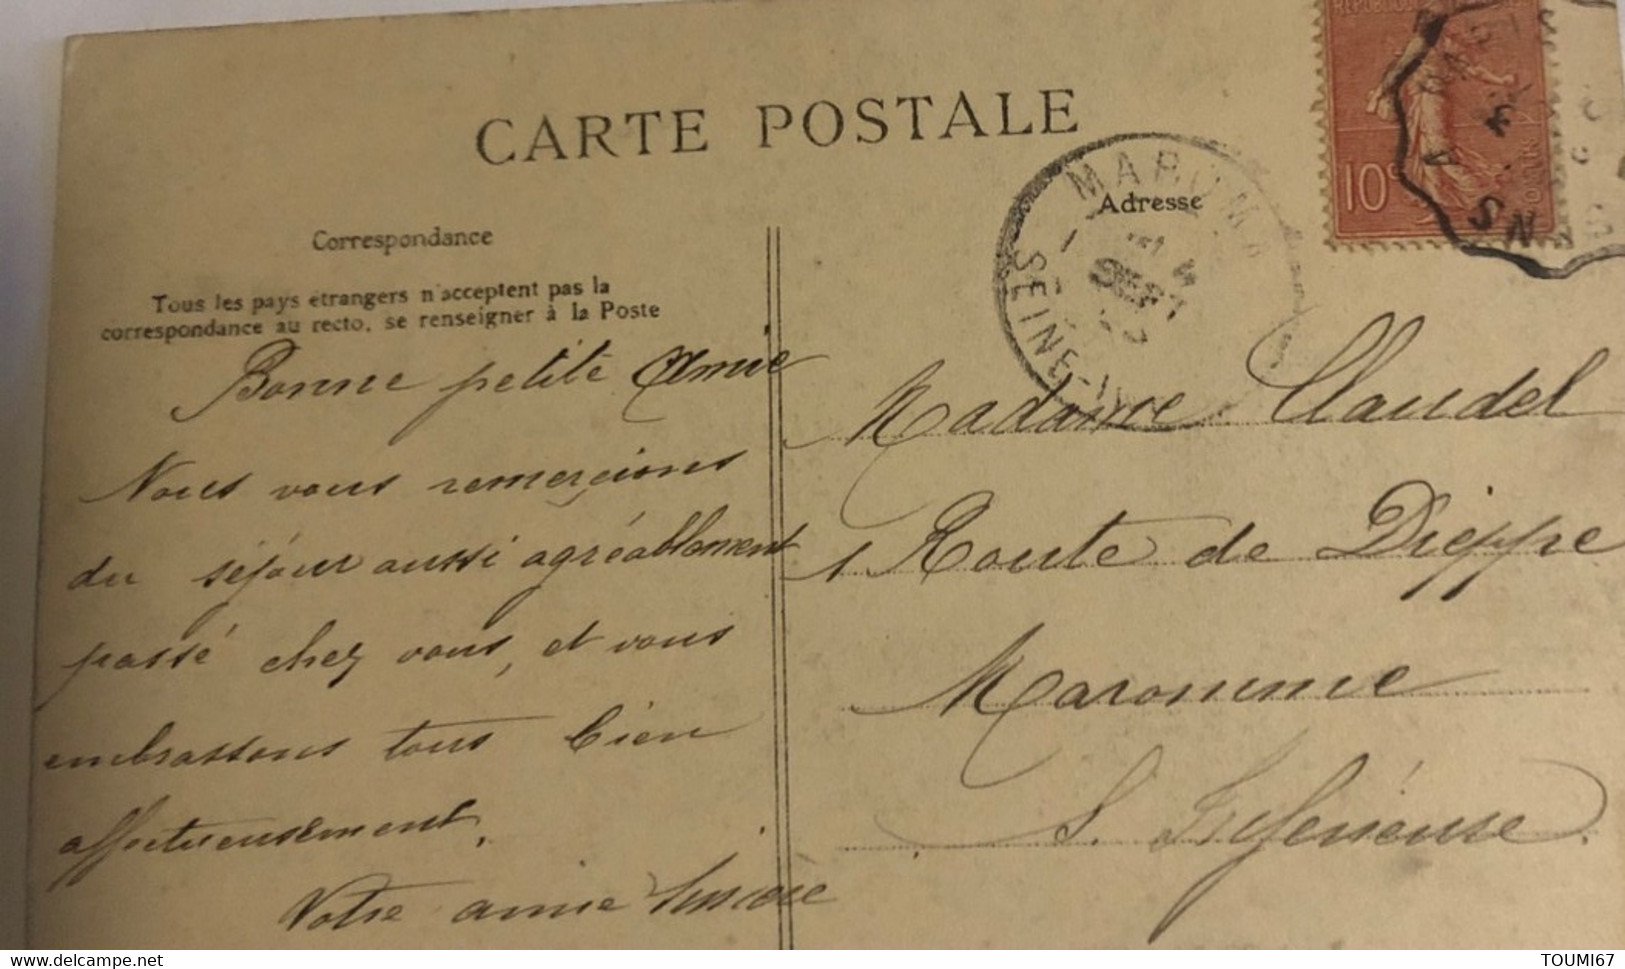 CARTE POSTALE
Correspondance
Tous les pays étrangers n'acceptent pas la
correspondance au recto, se renseigner à la Poste
Bonne petite Amie
Nous vous remerçions
du séjour aussi agréablement
passé chez vous, et vous
embrassons tous bien
affectueusement.
Votre amie
Adresse
MAROMM
SEINE-IN
10c
Madame Claudel
1 Route de Dieppe
Maromme
S. Inférieure.
TOUMI67